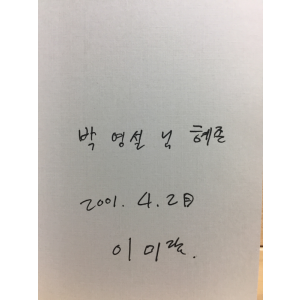 박 영설 님 혜존
2001. 4. 2日
이 미람.